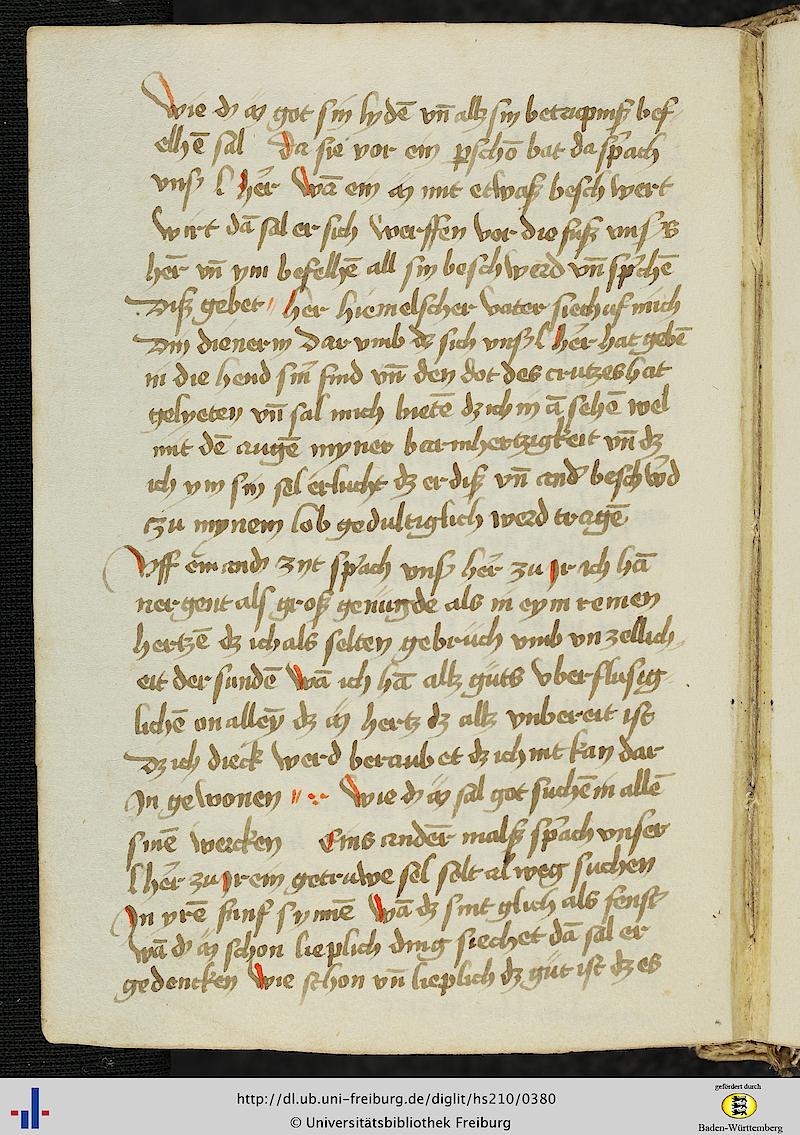 Wie d' mē got sin lydē vn̄ allz sin betrupniß bef-
elhē sal da sie vor ein pschō bat da sprach
vnß l her Wā ein mē mit etwaß beschwert
wirt dā sal er sich werffen vor die fuß vnßs
her vn̄ ym befelhē all sin beschwerd vn̄ sp'chē
Diß gebet her hiemelscher vater siech uf mich
Din dienerin Dar vmb dz sich vnß l her hat gebē
in die hend sin' find vn̄ den dot des crutzes hat
gelyeten vn̄ sal mich bietē dz ich in ā sehē wel
mit dē augē myner barmhertzigkeit vn̄ dz
ich ym sin sel erlucht dz er diß vn̄ and' beschw'd
czu mynem lob gedultiglich werd tragē
Vff ein and' zyt sprach vnß her zu ir ich hā
nergent als groß genugde als in eym reinen
hertzē dz ich als selten gebruch vmb vnzellich-
eit der sundē Wā ich hā allz guts vberflusig-
lichē on alley dz mē hertz dz allz vnbereit ist
Dz ich dieck werd beraubet dz ich nit kan dar
In gewonen Wie d' mē sal got suchē in allē
sinē wercken Eins anderē malß sprach vnser
l her zu ir ein getruwe sel solt al weg suchen
In yrē funf synnē Wā dz sint glich als fenst'
wā d' mē schon lieplich ding siechet dā sal er
gedencken Wie schon vn̄ lieplich dz gut ist dz es
http://dl.ub.uni-freiburg.de/diglit/hs210/0380
© Universitätsbibliothek Freiburg
gefördert durch
Baden-Württemberg